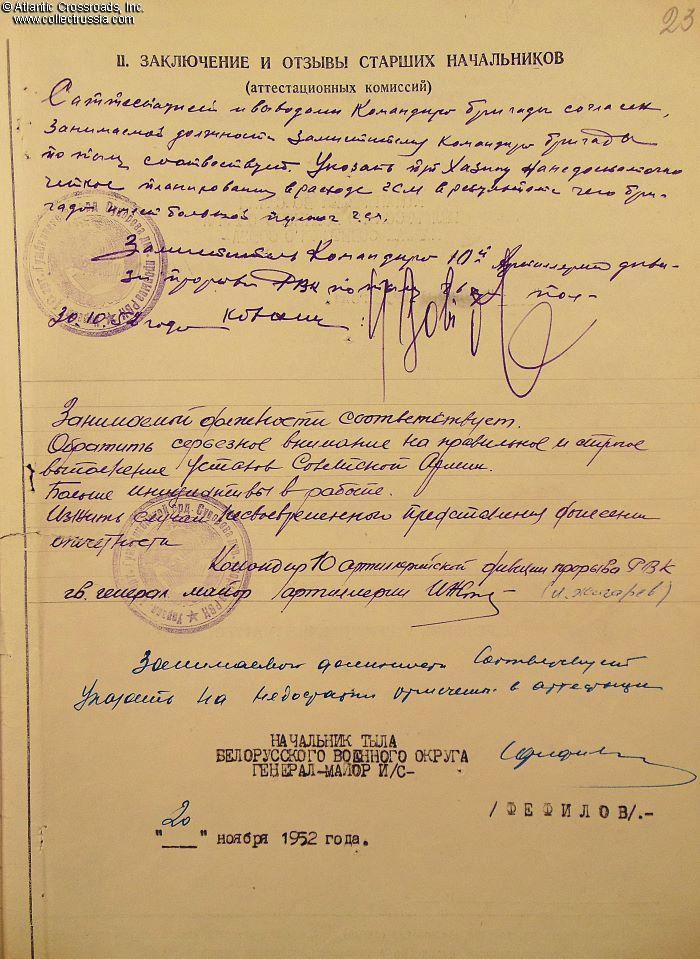 © Atlantic Crossroads, Inc.
www.collectrussia.com
23
II. ЗАКЛЮЧЕНИЕ И ОТЗЫВЫ СТАРШИХ НАЧАЛЬНИКОВ
(аттестационных комиссий)
С аттестацией и выводами Командира бригады согласен,
Занимаемой должности Заместителя Командира бригады
по тылу соответствует. Указать
четкое планирование в расходе ГСМ в результате чего бри-
гада имеет большой
Заместитель Командира 10й Артиллерий диви-
зии прорыва РВК по тылу пол-
30.10.52 года
Занимаемой должности соответствует.
Обратить серьезное внимание на правильное и
Уставов Советской Армии.
Больше инициативы в работе.
Изжить случаи несвоевременного представления донесений
отчетности
Командир 10 артиллерийской дивизии прорыва РВК
гв. генерал майор артиллерии (И. Жигарев)
Занимаемой должности Соответствует
Указать на недостатки отмечен. в аттестации
НАЧАЛЬНИК ТЫЛА
БЕЛОРУССКОГО ВОЕННОГО ОКРУГА
ГЕНЕРАЛ-МАЙОР И/С-
/ФЕФИЛОВ/.-
"20" ноября 1952 года.